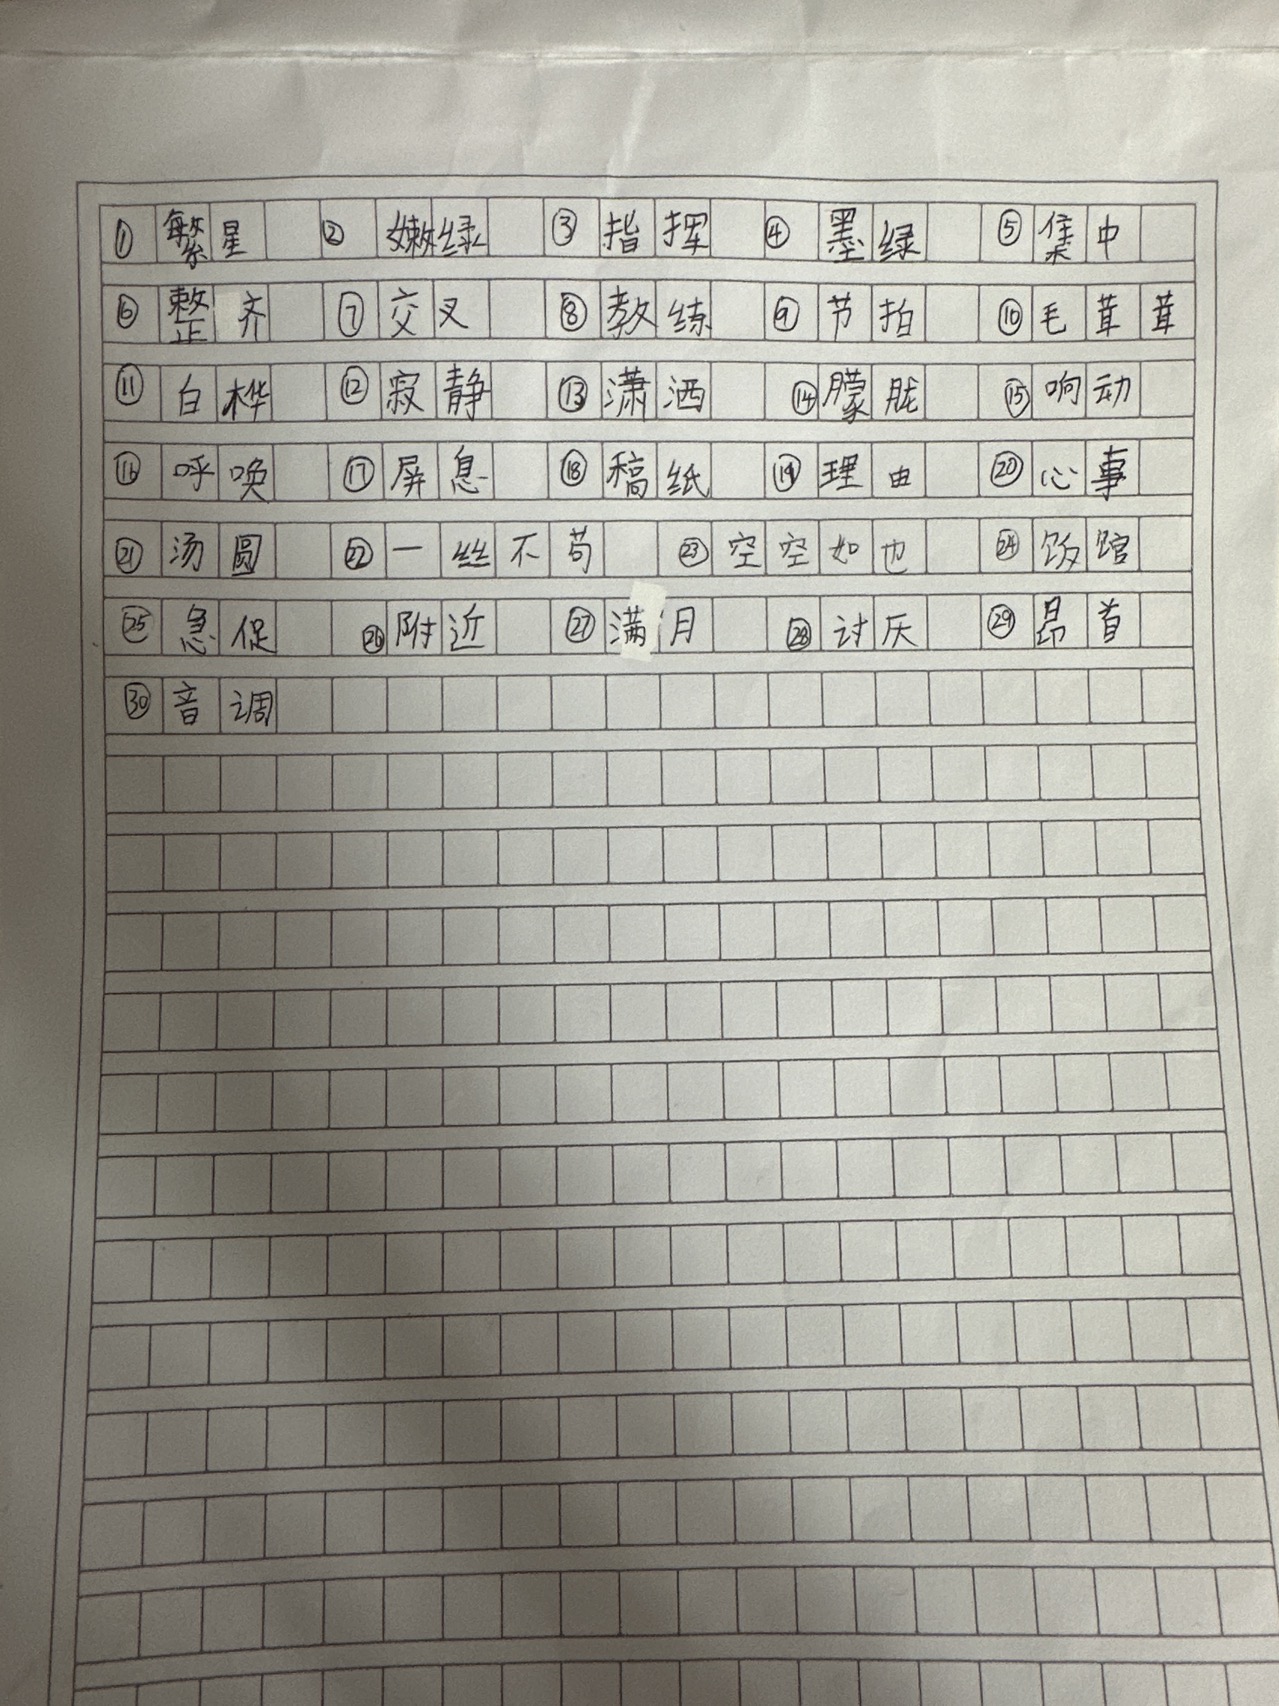 ① 繁星 ② 嫩绿 ③ 指挥 ④ 墨绿 ⑤ 集中
⑥ 整齐 ⑦ 交叉 ⑧ 教练 ⑨ 节拍 ⑩ 毛茸茸
⑪ 白桦 ⑫ 寂静 ⑬ 潇洒 ⑭ 朦胧 ⑮ 响动
⑯ 呼唤 ⑰ 屏息 ⑱ 稿纸 ⑲ 理由 ⑳ 心事
㉑ 汤圆 ㉒ 一丝不苟 ㉓ 空空如也 ㉔ 饭馆
㉕ 急促 ㉖ 附近 ㉗ 满月 ㉘ 讨厌 ㉙ 昂首
㉚ 音调